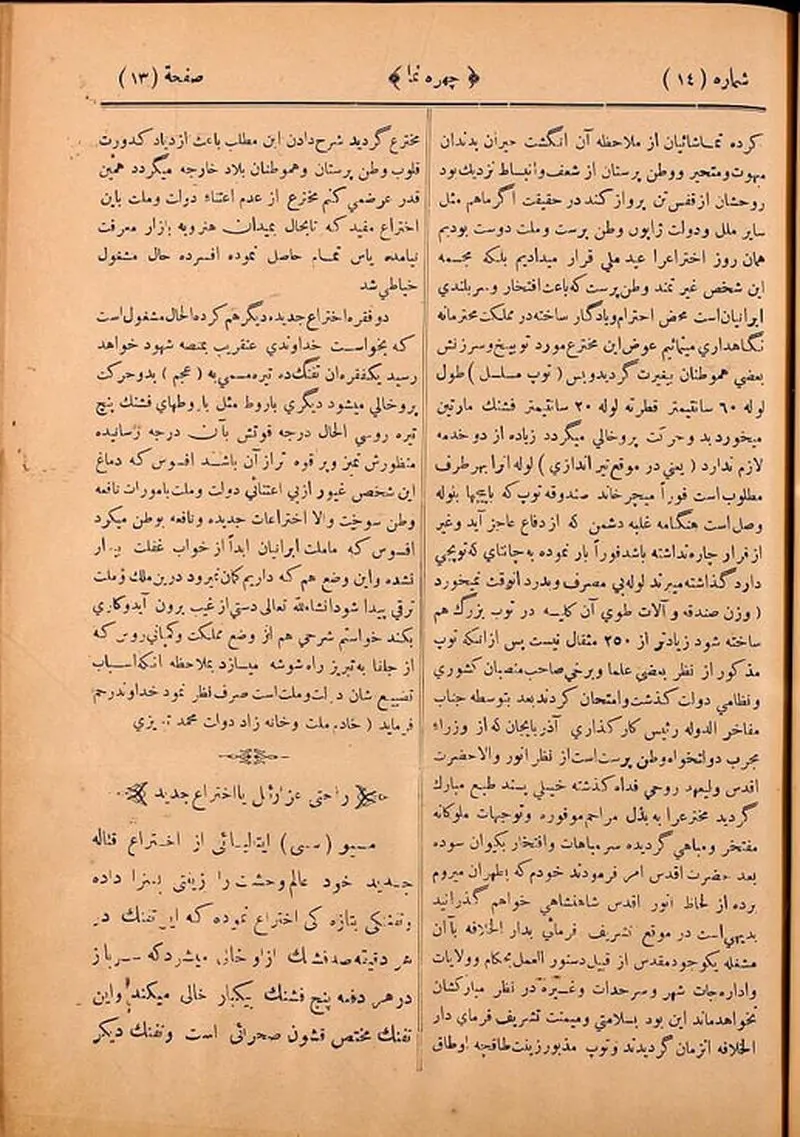 شماره (١٤)
﴿ چهره نما ﴾
صفحة (١٣)
کرده تماشائیان از ملاحظه آن انگشت حیران بدندان
مبهوت ومتحیر ووطن پرستان از شعف وانبساط نزدیک بود
روحشان از قفس تن پرواز کند در حقیقت اگر ماهم مثل
سایر ملل ودولت ژاپون وطن پرست وملت دوست بودیم
همان روز اختراعرا عید ملی قرار میدادیم بلکه مجسمه
این شخص غیرتمند وطن پرست که باعث افتخار وسربلندی
ایرانیان است محض احترام ویادگار ساخته در مملکت محترمانه
نگاهداری مینمائیم عوض این مخترع مورد توبیخ وسرزنش
بعضی هموطنان بیغیرت گردید وپس (توپ مسلسل) طول
لوله ٦٠ سانتیمتر قطر ته لوله ٢٠ سانتیمتر فشنك مارتین
میخورد بدو حرکت پروخالی میگردد زیاده از دو خدمه
لازم ندارد (یعنی در موقع تیر اندازی) لوله انرا بهر طرف
مطلوب است فوراً میچرخاند صندوقه توپ که باپیچها بلوله
وصل است هنگامه غلبه دشمن که از دفاع عاجز آید وغیر
از فرار چاره نداشته باشد فوراً بار نموده به چانتای که توپچی
دارد گذاشته میبرند لوله بی مصرف وبدرد انوقت نمیخورد
(وزن صندقه و آلات طوی آن کلیه در توپ بزرگ هم
ساخته شود زیادتر از ٢٥٠ مثقال نیست پس از انکه توپ
مذکور از نظر بعضی علما وبرخی صاحب منصبان کشوری
ونظامی دولت گذشت وامتحان کردند بعد بتوسطه جناب
مفاخر الدوله رئیس کارگذاری آذربایجان که از وزراء
مجرب دولتخواه وطن پرست است از نظر انور والاحضرت
اقدس ولیعهد روحی فداه گذشته خیلی پسند طبع مبارك
گردید مخترعرا به بذل مراحم موفوره وتوجهات ملوکانه
مفتخر ومباهی گردیده سر مباهات وافتخار بکیوان سوده
بعد حضرت اقدس امر فرمودند خودم که بطهران میروم
برده از لحاظ انور اقدس شاهنشاهی خواهم گذرانید
بدیهی است در موقع تشریف فرمائی بدار الخلافه با آن
مشغله یکوجود مقدس از قبیل دستور العمل بحکام وولایات
واداره جات شهر وسرحدات وغیره در نظر مبارکشان
نخواهد ماند این بود بسلامتی ومیمنت تشریف فرمای دار
الخلافه انزمان گردیدند وتوپ مذبور زینت طاقچه اوطاق
مخترع گردید شرح دادن این مطلب باعث ازدیاد کدورت
قلوب وطن پرستان وهموطنان بلاد خارجه میگردد همین
قدر عرض می کنم مخترع از عدم اعتناء دولت وملت باین
اختراع مفید که تابحال بمیدان هنر وبه بازار معرفت
نیامده یاس تمام حاصل نموده افسرده حال مشغول
خیاطی شد
دو فقره اختراع جدیده دیگر هم کرده الحال مشغول است
که بخواست خداوندی عنقریب بمنصه شهود خواهد
رسید یکفقره ان تفنك ده تیره مسمی به (عجم) بدو حرکت
پروخالی میشود دیگری باروط مثل باروطهای فشنك پنج
تیره روسی الحال درجه قوتش بآن درجه رسانیده
منظورش تمیز وپر قوه تر از آن باشد افسوس که دماغ
این شخص غیور از بی اعتنائی دولت وملت بامورات نافعه
وطن سوخت والا اختراعات جدیده ونافعه بوطن میکرد
افسوس که ماملت ایرانیان ابداً از خواب غفلت بیدار
نشده واین وضع هم که داریم گمان نمیرود درین ملك وملت
ترقی پیدا شود انشاءلله تعالی دستی از غیب برون آید وکاری
بکند خواستم شرحی هم از وضع مملکت وکمپانی روس که
از جلفا به تبریز راه شوشه میسازد بملاحظه انکه اسباب
تضییع شان دولت وملت است صرف نظر نمود خداوند رحم
فرماید (خادم ملت وخانه زاد دولت محمد تبریزی
راحتی عزارئل یا اختراع جدید
مسیو (سی) ایتالیائی از اختراع قتاله
جدید خود عالم وحشت را زینتی بسزا داده
وتفنگی بتازه گی اختراع نموده که این تفنك در
هر دقیقه صد فشنك از او خالی میشود که سرباز
در هر دفعه پنج فشنك بیکبار خالی میکند واین
تفنك مختص قشون صحرائی است وتفنك دیگر